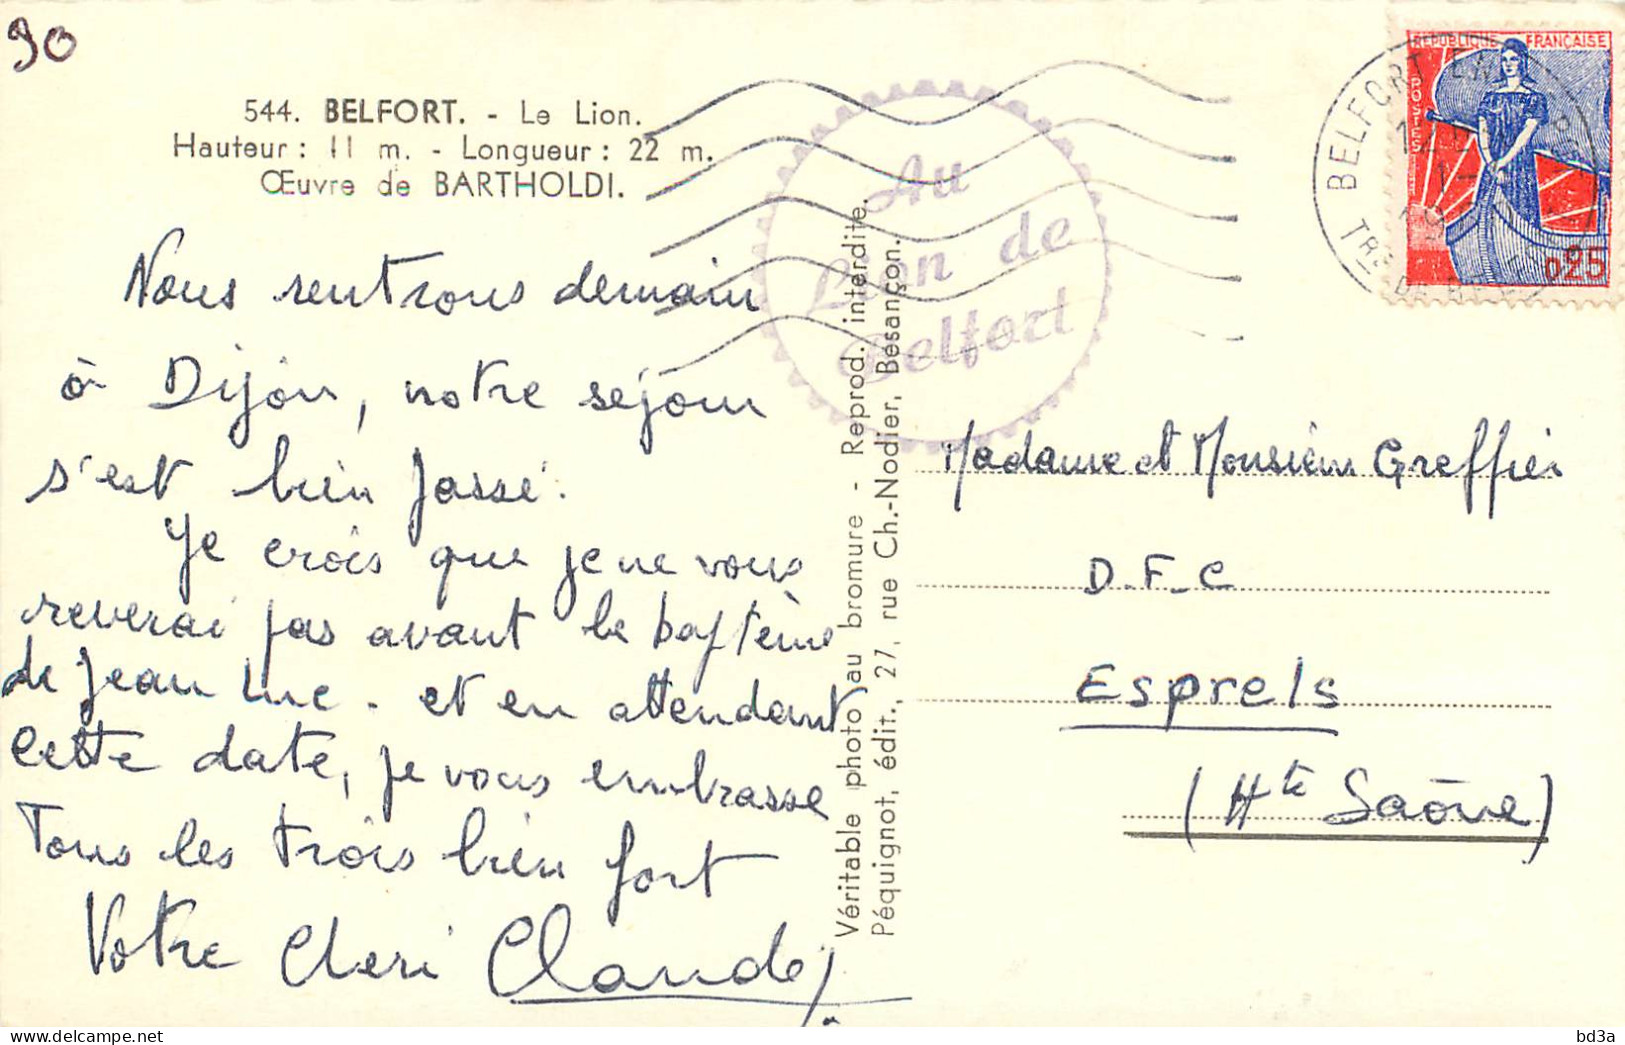 90
544. BELFORT. - Le Lion.
Hauteur : 11 m. - Longueur : 22 m.
Œuvre de BARTHOLDI.
Nous rentrons demain
à Dijon, notre séjour
s'est bien passé.
Je crois que je ne vous
reverai pas avant le baptême
de Jean Luc - et en attendant
cette date, je vous embrasse
Tous les trois bien fort
Votre Cheri Claude
Au
Lion de
Belfort
Véritable photo au bromure - Reprod. interdite.
Péquignot, édit., 27, rue Ch.-Nodier, Besançon.
REPUBLIQUE FRANÇAISE
POSTES
0,25
BELFORT
Madame et Monsieur Greffier
D.F.C
Esprels
(Hte Saône)
bd3a